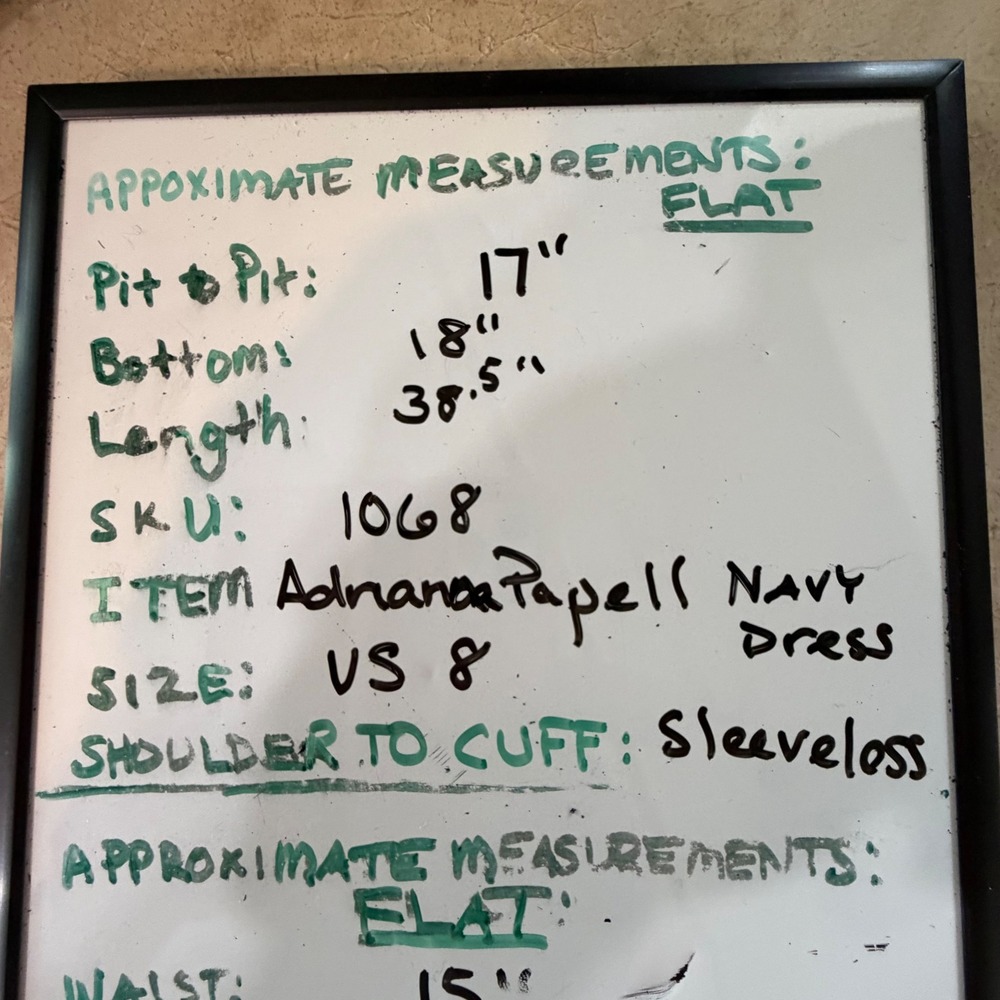 APPOXIMATE MEASUREMENTS:
FLAT
Pit to Pit: 17"
Bottom: 18"
Length: 38.5"
SKU: 1068
ITEM Adrianna Papell NAVY
Dress
SIZE: US 8
SHOULDER TO CUFF: Sleeveless
APPROXIMATE MEASUREMENTS:
FLAT:
WAIST: 15"